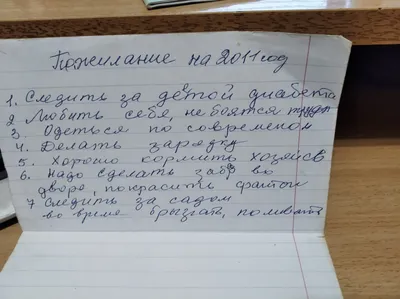 Пожилание на 2011 год
1. Следить за детой диабета
2 Любить себя, не боятся труда
3 Одеться по современом
4. Делать зарядку
5. Хорошо кормить хозяев
6. Надо сделать забр во
дворе, покрасить фантон
7 Следить за садом
во время брызгать, поливать